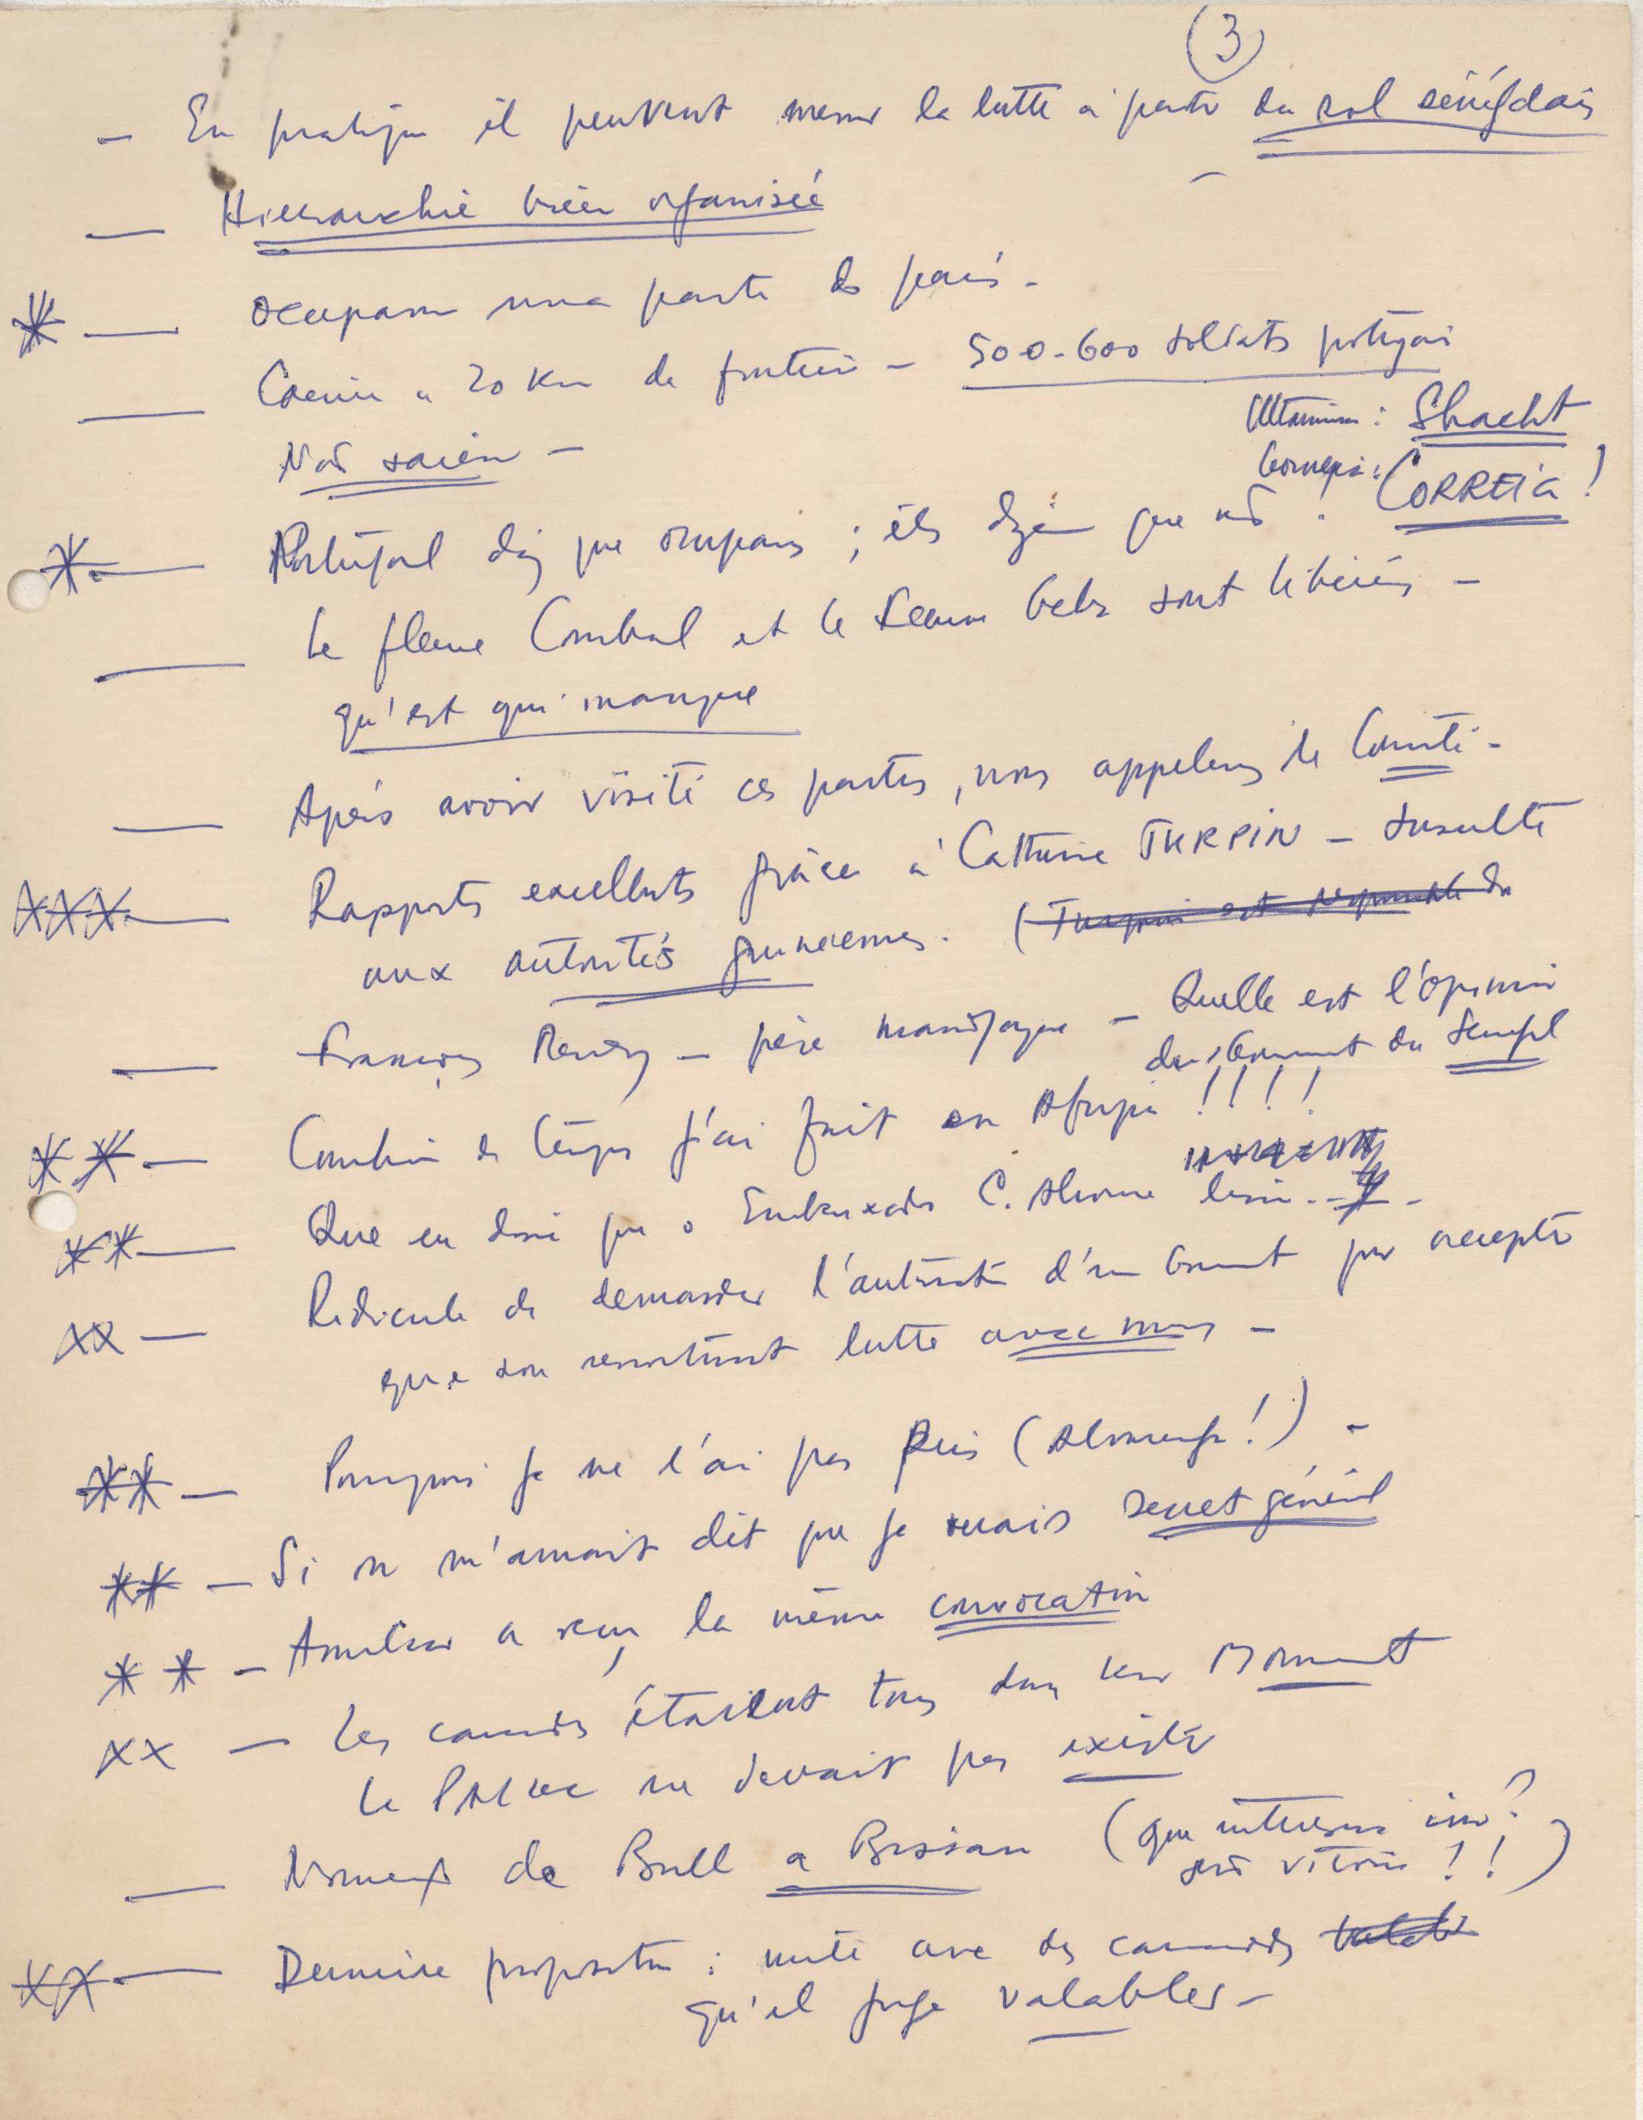 (3)
— En pratique il peuvent mener la lutte à partir du sol sénégalais
— Hierarchie bien organisée
— Ocupam uma parte do pais -
— Cacine a 20 Km de frontière - 500-600 soldats portugais
Não saiem -
Shacht
CORREIA !
— Portugal diz que ocupam ; ils dizem que não.
— Le fleuve Combal et le sont libérés -
qu'est qui manque
— Après avoir visité ces parties, nous appelons le Comité -
XXX — Rapports excellents grâce à Catherine TURPIN - Insulte
aux autorités guinéennes. (Turpin est responsable du
— François Mendy - père mandjaque - Quelle est l'opinion
du Sénégal
— Combien de temps j'ai fait en Afrique !!!!
— Que eu disse que o Embaixador C. Alioune
xx — Ridicule de demander l'autorité d'un Gouvnt pour accepter
que son lutte avec nous -
— Pourquoi je ne l'ai pas pris ( !) -
— Si on m'avait dit que je serais Secret général
— Amilcar a reçu la même convocation
xx — Les camarades étaient tous dans leur Mouvement
Le PAIGC ne devait pas exister
— de Bull a Bissau (que interesse isso?
são vitórias !!)
XX — Dernière proposition : unité avec des camarades valables
qu'il juge valables -